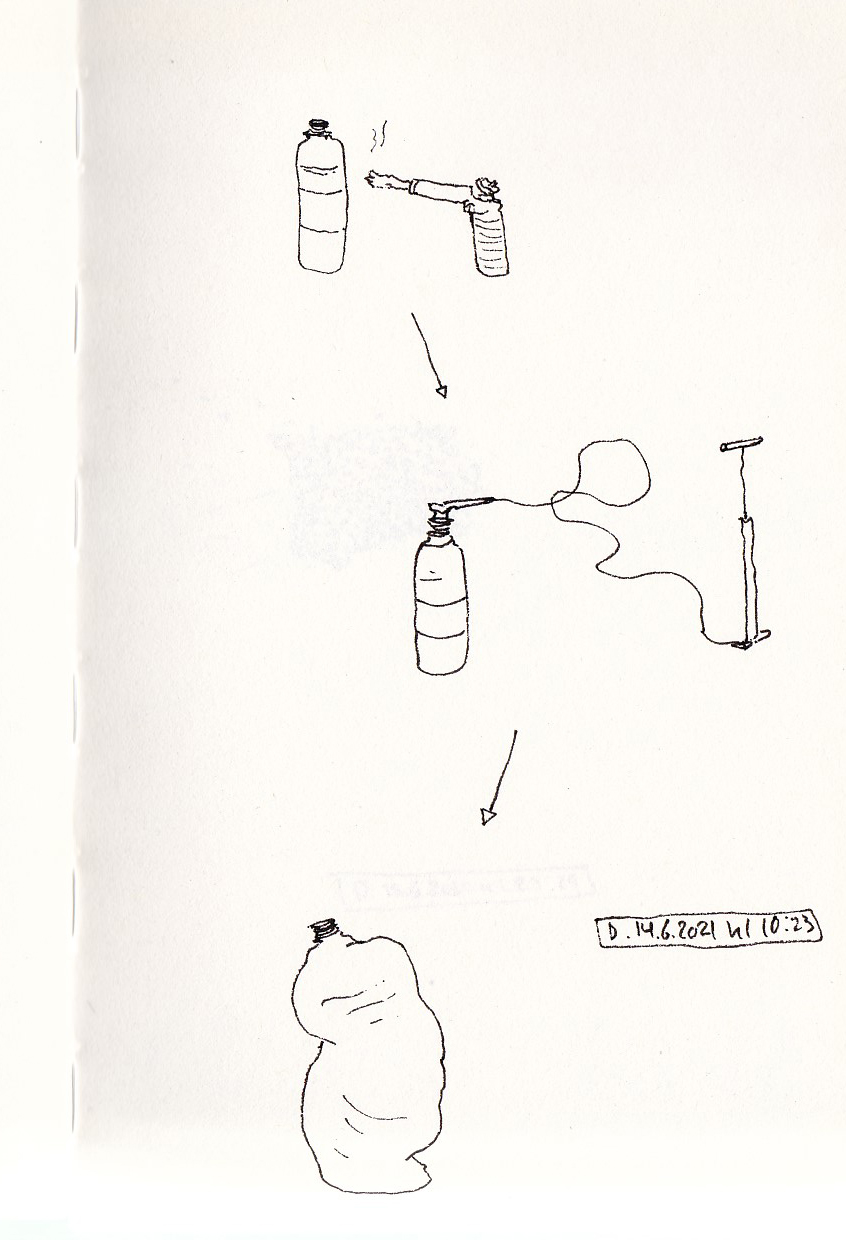 D. 14.6.2021 kl 10:23